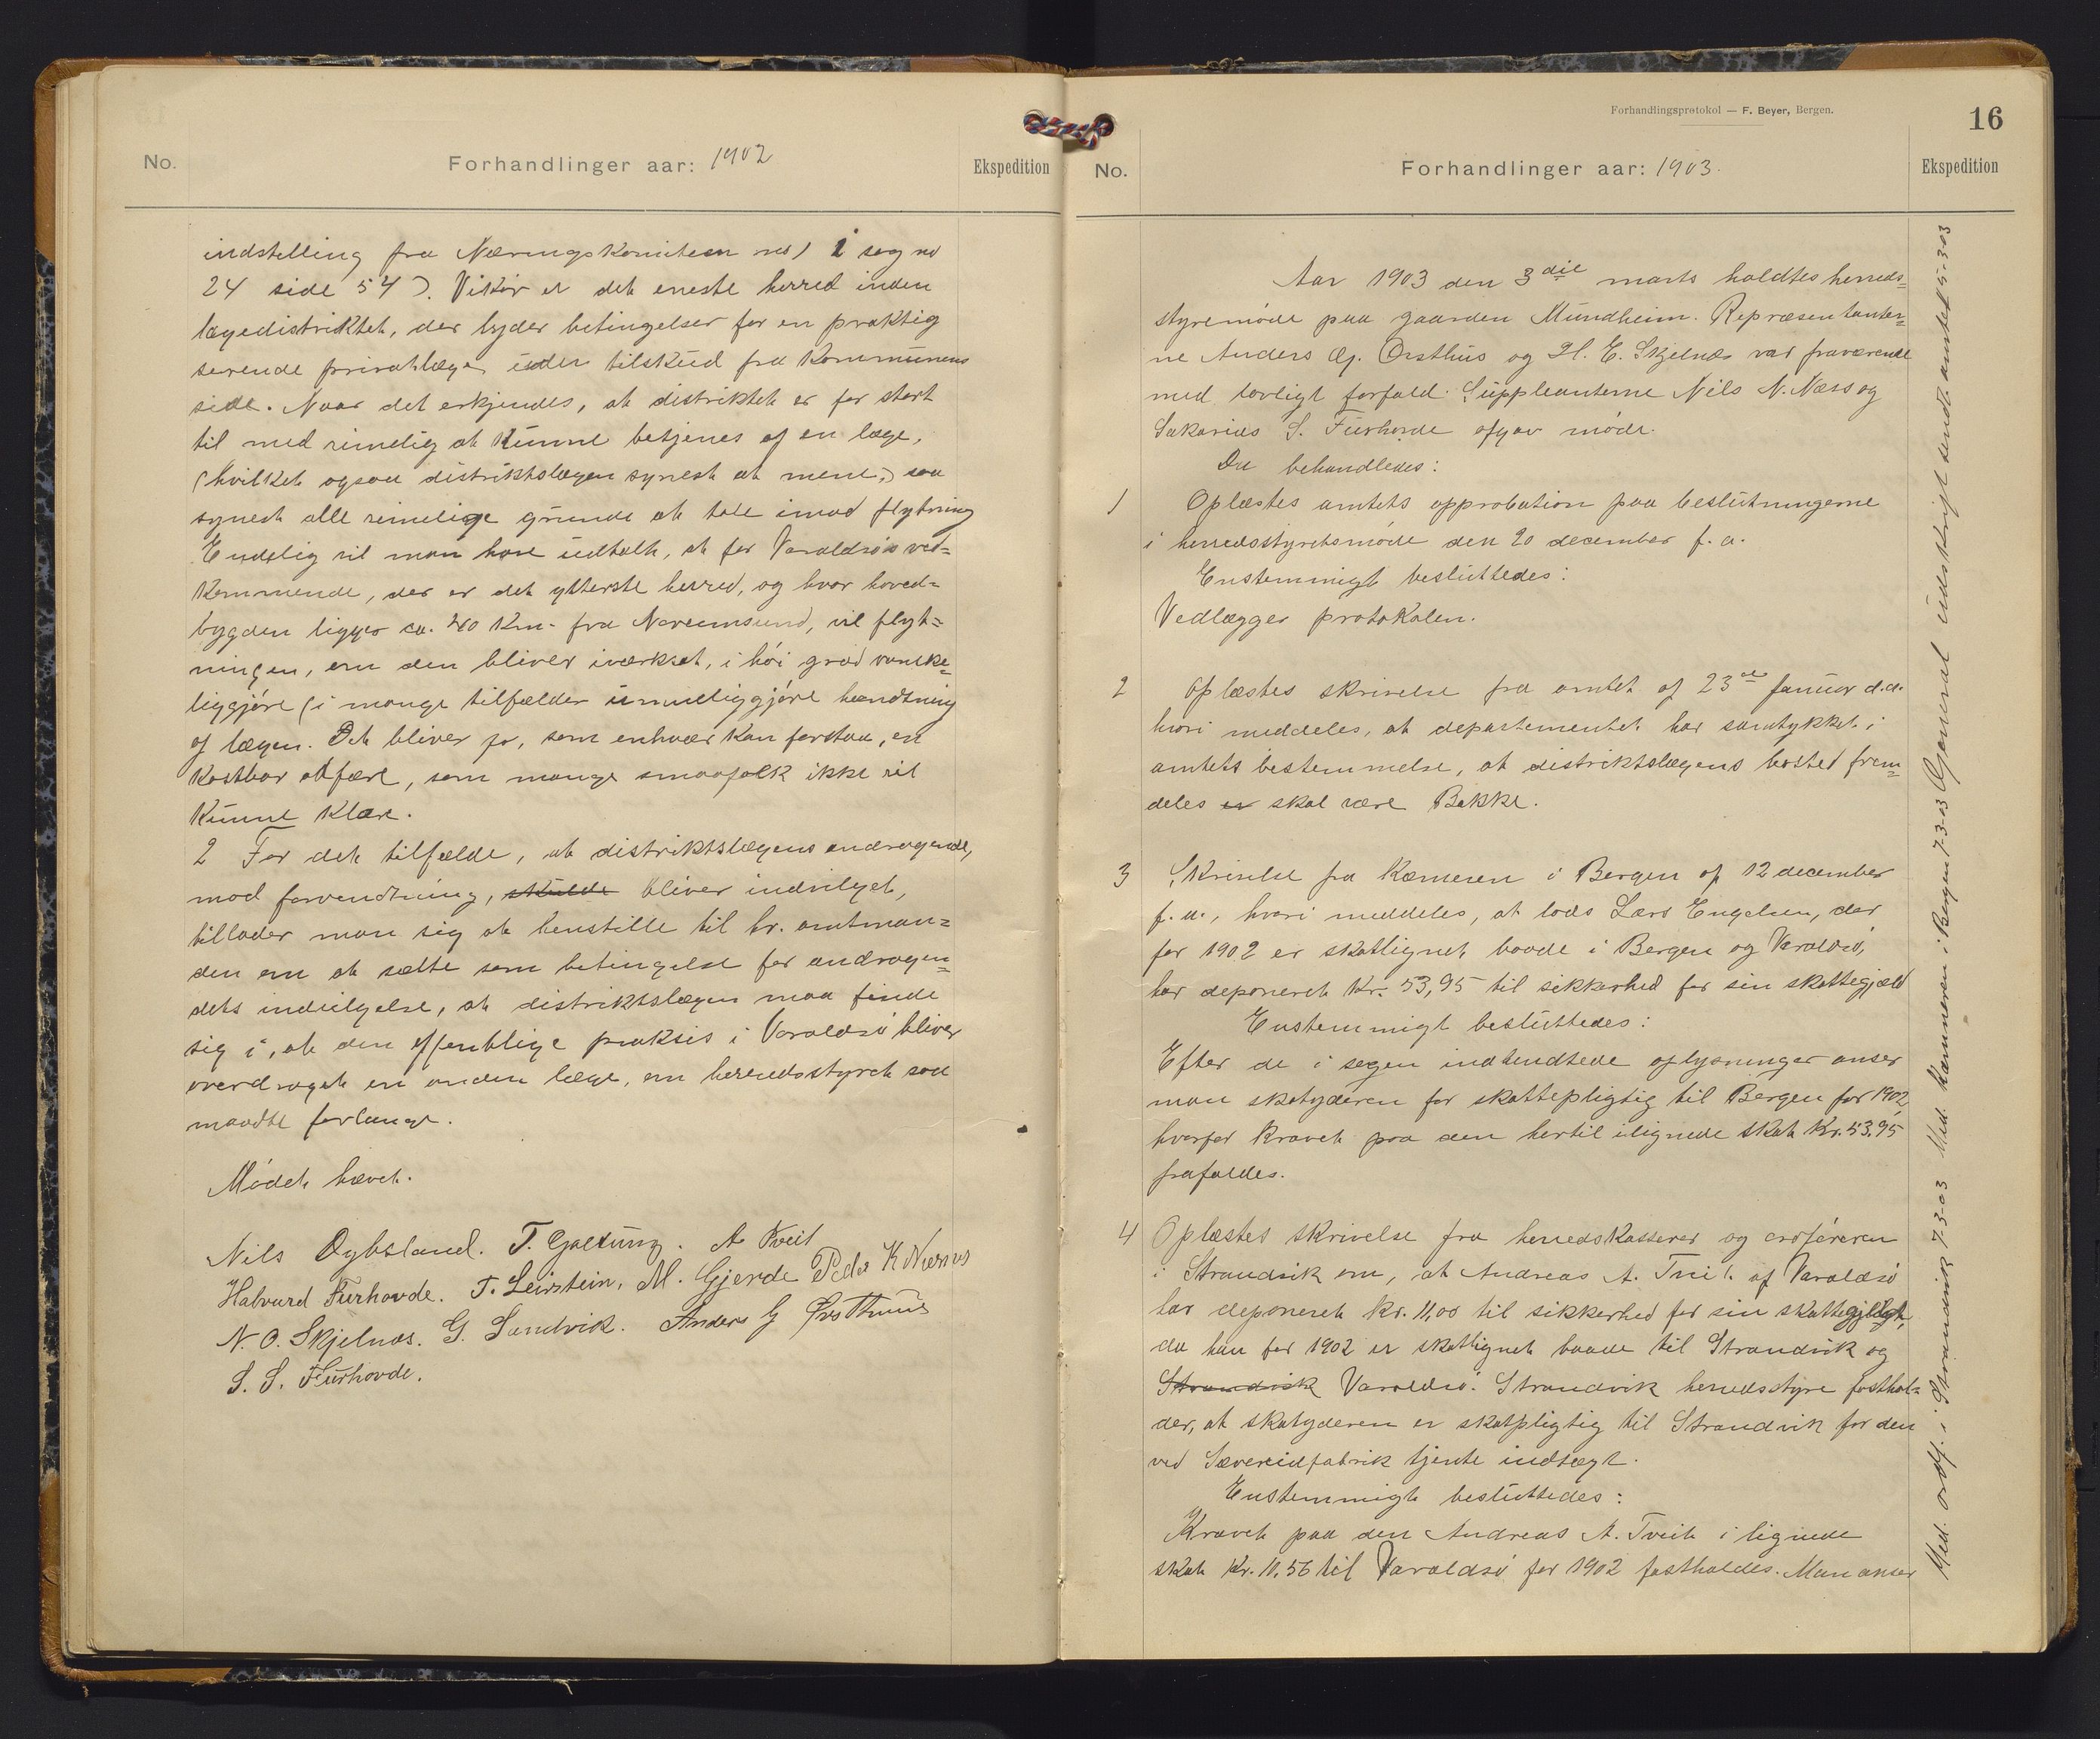 No.
Forhandlinger aar: 1902
Ekspedition
indstilling fra Næringskomiteen no 1 i sag no
24 side 54). Vikør er det eneste herred inden
lægedistriktet, der byder betingelser for en praktig
serende privatlæge uden tilskud fra kommunens
side. Naar det erkjendes, at distriktet er for stort
til med rimelig at kunne betjenes af en læge,
(hvilket ogsaa distriktslægen synest at mene,) saa
synest alle rimelige grunde at tale imod flytning
Endelig vil man have udtalt, at for Varaldsøs ved-
kommende, der er det ytterste herred, og hvor hoved-
bygden ligger ca. 40 km. fra Noreimsund, vil flyt-
ningen, om den bliver iværksat, i høi grad vanske-
liggjøre (i mange tilfælder umueliggjøre hændtning
af lægen. Det bliver jo, som enhver kan forstaa, en
kostbar affære, som mange smaafolk ikke vil
kunne klare.
2 For det tilfælde, at distriktslægens andragende,
mod forvendtning, skulde bliver indvilget,
tillader man sig at henstille til hr. amtman-
den om at sætte som betingelse for andragen-
dets indvilgelse, at distriktslægen maa finde
sig i, at den offentlige praksis i Varaldsø bliver
overdraget en anden læge, om herredsstyret saa
maadte forlange.
Mødet hævet.
Nils Oybsland. T. Gjelsung. A Tveit
Halvard Furhovde. T. Leirstein. M. Gjerde Peder K Næsnes
N. O. Skjelnæs. G. Sandvik. Anders G Ørsthuus
S. S. Furhovde.
Forhandlingsprotokol — F. Beyer, Bergen.
16
No.
Forhandlinger aar: 1903.
Ekspedition
Aar 1903 den 3die marts holdtes herreds-
styremøde paa gaarden Mundheim. Repræsentanter-
ne Anders G. Ørsthus og H. E. Skjelnæs var fraværende
med lovligt forfald. Suppleanterne Nils N. Næss og
Sakarias S. Furhovde afgav møde.
Da behandledes:
1 Oplæstes amtets approbation paa beslutningerne
i herredsstyretsmøde den 20 december f. a.
Enstemmigt besluttedes:
Vedlægges protokolen.
2 Oplæstes skrivelse fra amtet af 23de januar d.a.
hvori meddeles, at departementet har samtykket i
amtets bestemmelse, at distriktslægens bosted frem-
deles er skal være Bakke.
3 Skrivelse fra Kæmneren i Bergen af 12 december
f. a., hvori meddeles, at lods Lars Engelsen, der
for 1902 er skatlignet baade i Bergen og Varaldsø,
har deponeret Kr. 53,95 til sikkerhed for sin skattegjæld
Enstemmigt besluttedes:
Efter de i sagen indhendtede oplysninger anser
man skatyderen for skattepligtig til Bergen for 1902,
hvorfor kravet paa den hertil ilignede skat kr. 53,95
frafaldes.
4 Oplæstes skrivelse fra herredskasserer og ordføreren
i Strandvik om, at Andreas A. Tveit af Varaldsø
har deponeret kr. 11,00 til sikkerhed for sin skattepligt,
da han for 1902 er skatlignet baade til Strandvik og
Strandvik Varaldsø. Strandvik herredsstyre fasthol-
der, at skatyderen er skatpligtig til Strandvik for den
ved Sævereidfabrik tjente indtægt.
Enstemmigt besluttedes:
Kravet paa den Andreas A. Tveit i lignede
skat kr. 10,56 til Varaldsø for 1902 fastholdes. Man anser
Med. ordf. i Strandvik 7-3-03 Med. Kæmneren i Bergen 7-3-03 General udskrift sendt amtet 5-3-03